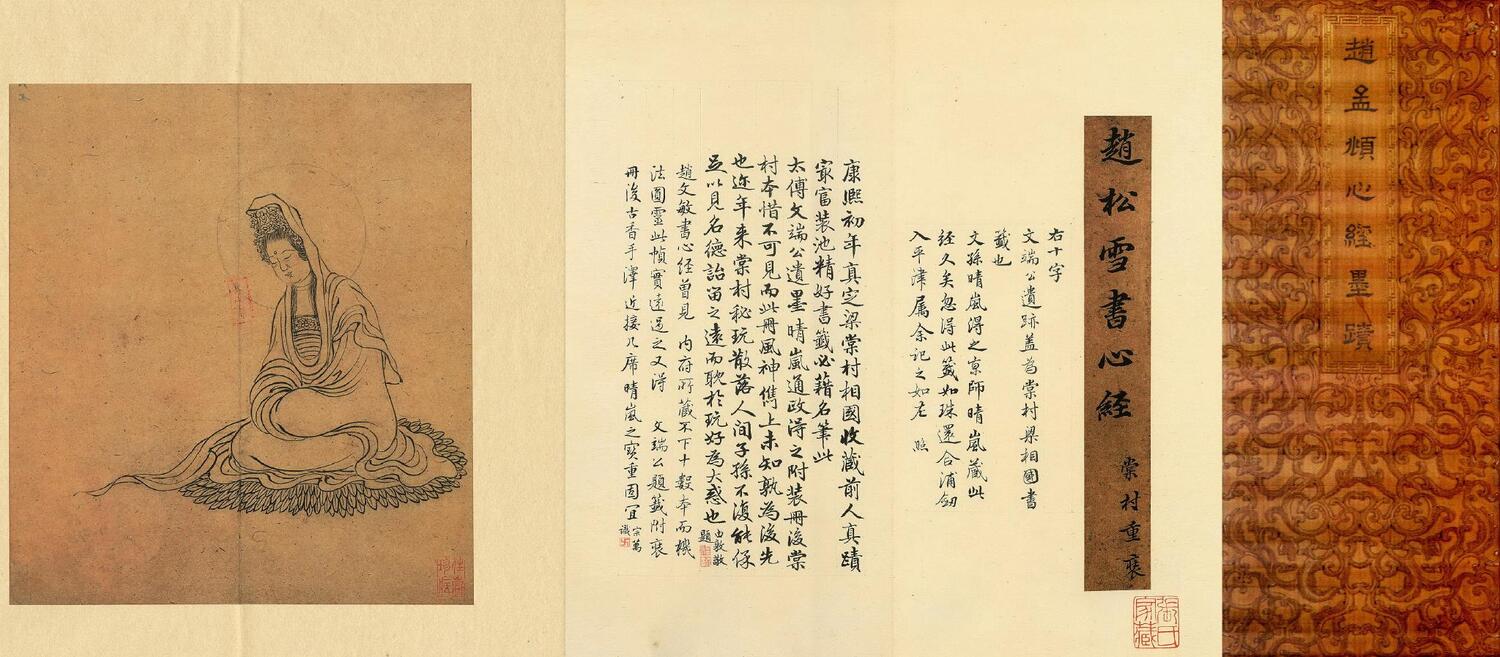 趙孟頫心經墨蹟
趙松雪書心経
棠村重
張氏家藏
右十字
文端公遺跡蓋為棠村梁相國書
籤也
文孫晴嵐得之京師晴嵐藏此
経久矣忽得此籤如珠還合浦劒
入平津属余記之如左 照
康熙初年真定梁棠村相國收藏前人真蹟
冣富装池精好書籤必藉名筆此
太傅文端公遺墨晴嵐通政得之附装冊後棠
村本惜不可見而此冊風神儁上未知孰為後先
也近年来棠村秘玩散落人間子孫不復能保
足以見名德詒留之遠而耽於玩好為大惑也
由敦敬題
趙文敏書心経曽見 內府所藏不下十數本而機
法圓靈此幀實遠過之又得 文端公題籤附
冊後古香手澤近接几席晴嵐之寳重固宜
宗萬識